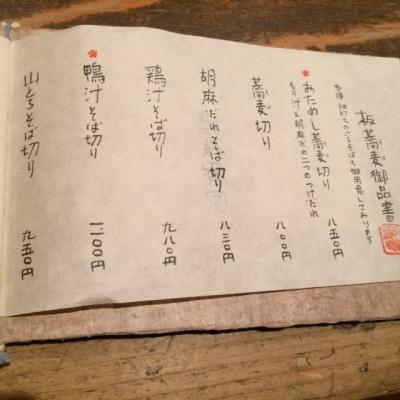 板蕎麦御品書
細打ちのごそばも御用意しております
おためし蕎麦切り 八五〇円
辛汁と胡麻だれ二つのつけだれ
蕎麦切り 八〇〇円
胡麻だれそば切り 八三〇円
鶏汁そば切り 九八〇円
鴨汁そば切り 一、一〇〇円
山とろそば切り 九五〇円